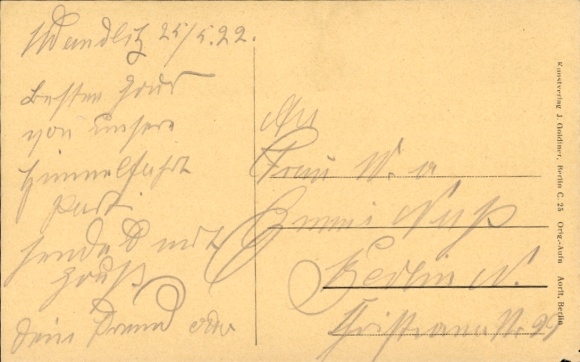 Wandlitz 25/5.22.
Besten Gruß
von unsere
Himmelfahrt
Part.
sendet mit
Gruß
Dein Freund
An
Frau W. u
Emmi
Berlin N.
Kunstverlag J. Goldiner, Berlin C. 25 Orig.-Aufn Aorlt, Berlin